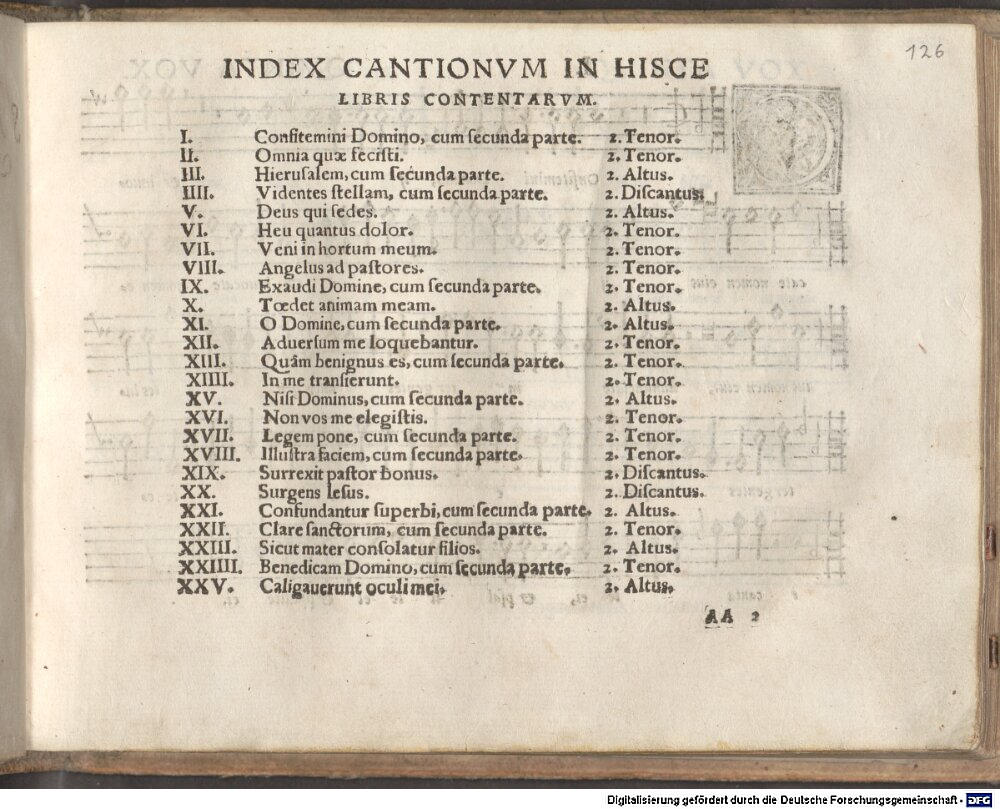 126
INDEX CANTIONVM IN HISCE
LIBRIS CONTENTARVM.
I. Confitemini Domino, cum ſecunda parte. 2. Tenor.
II. Omnia quæ feciſti. 2. Tenor.
III. Hieruſalem, cum ſecunda parte. 2. Altus.
IIII. Videntes ſtellam, cum ſecunda parte. 2. Diſcantus.
V. Deus qui ſedes. 2. Altus.
VI. Heu quantus dolor. 2. Tenor.
VII. Veni in hortum meum. 2. Tenor.
VIII. Angelus ad paſtores. 2. Tenor.
IX. Exaudi Domine, cum ſecunda parte. 2. Tenor.
X. Tœdet animam meam. 2. Altus.
XI. O Domine, cum ſecunda parte. 2. Altus.
XII. Aduerſum me loquebantur. 2. Tenor.
XIII. Quâm benignus es, cum ſecunda parte. 2. Tenor.
XIIII. In me tranſierunt. 2. Tenor.
XV. Niſi Dominus, cum ſecunda parte. 2. Altus.
XVI. Non vos me elegiſtis. 2. Tenor.
XVII. Legem pone, cum ſecunda parte. 2. Tenor.
XVIII. Illuſtra faciem, cum ſecunda parte. 2. Tenor.
XIX. Surrexit paſtor bonus. 2. Diſcantus.
XX. Surgens Ieſus. 2. Diſcantus.
XXI. Confundantur ſuperbi, cum ſecunda parte. 2. Altus.
XXII. Clare ſanctorum, cum ſecunda parte. 2. Tenor.
XXIII. Sicut mater conſolatur filios. 2. Altus.
XXIIII. Benedicam Domino, cum ſecunda parte. 2. Tenor.
XXV. Caligauerunt oculi mei. 2. Altus.
AA 2
Digitalisierung gefördert durch die Deutsche Forschungsgemeinschaft - DFG